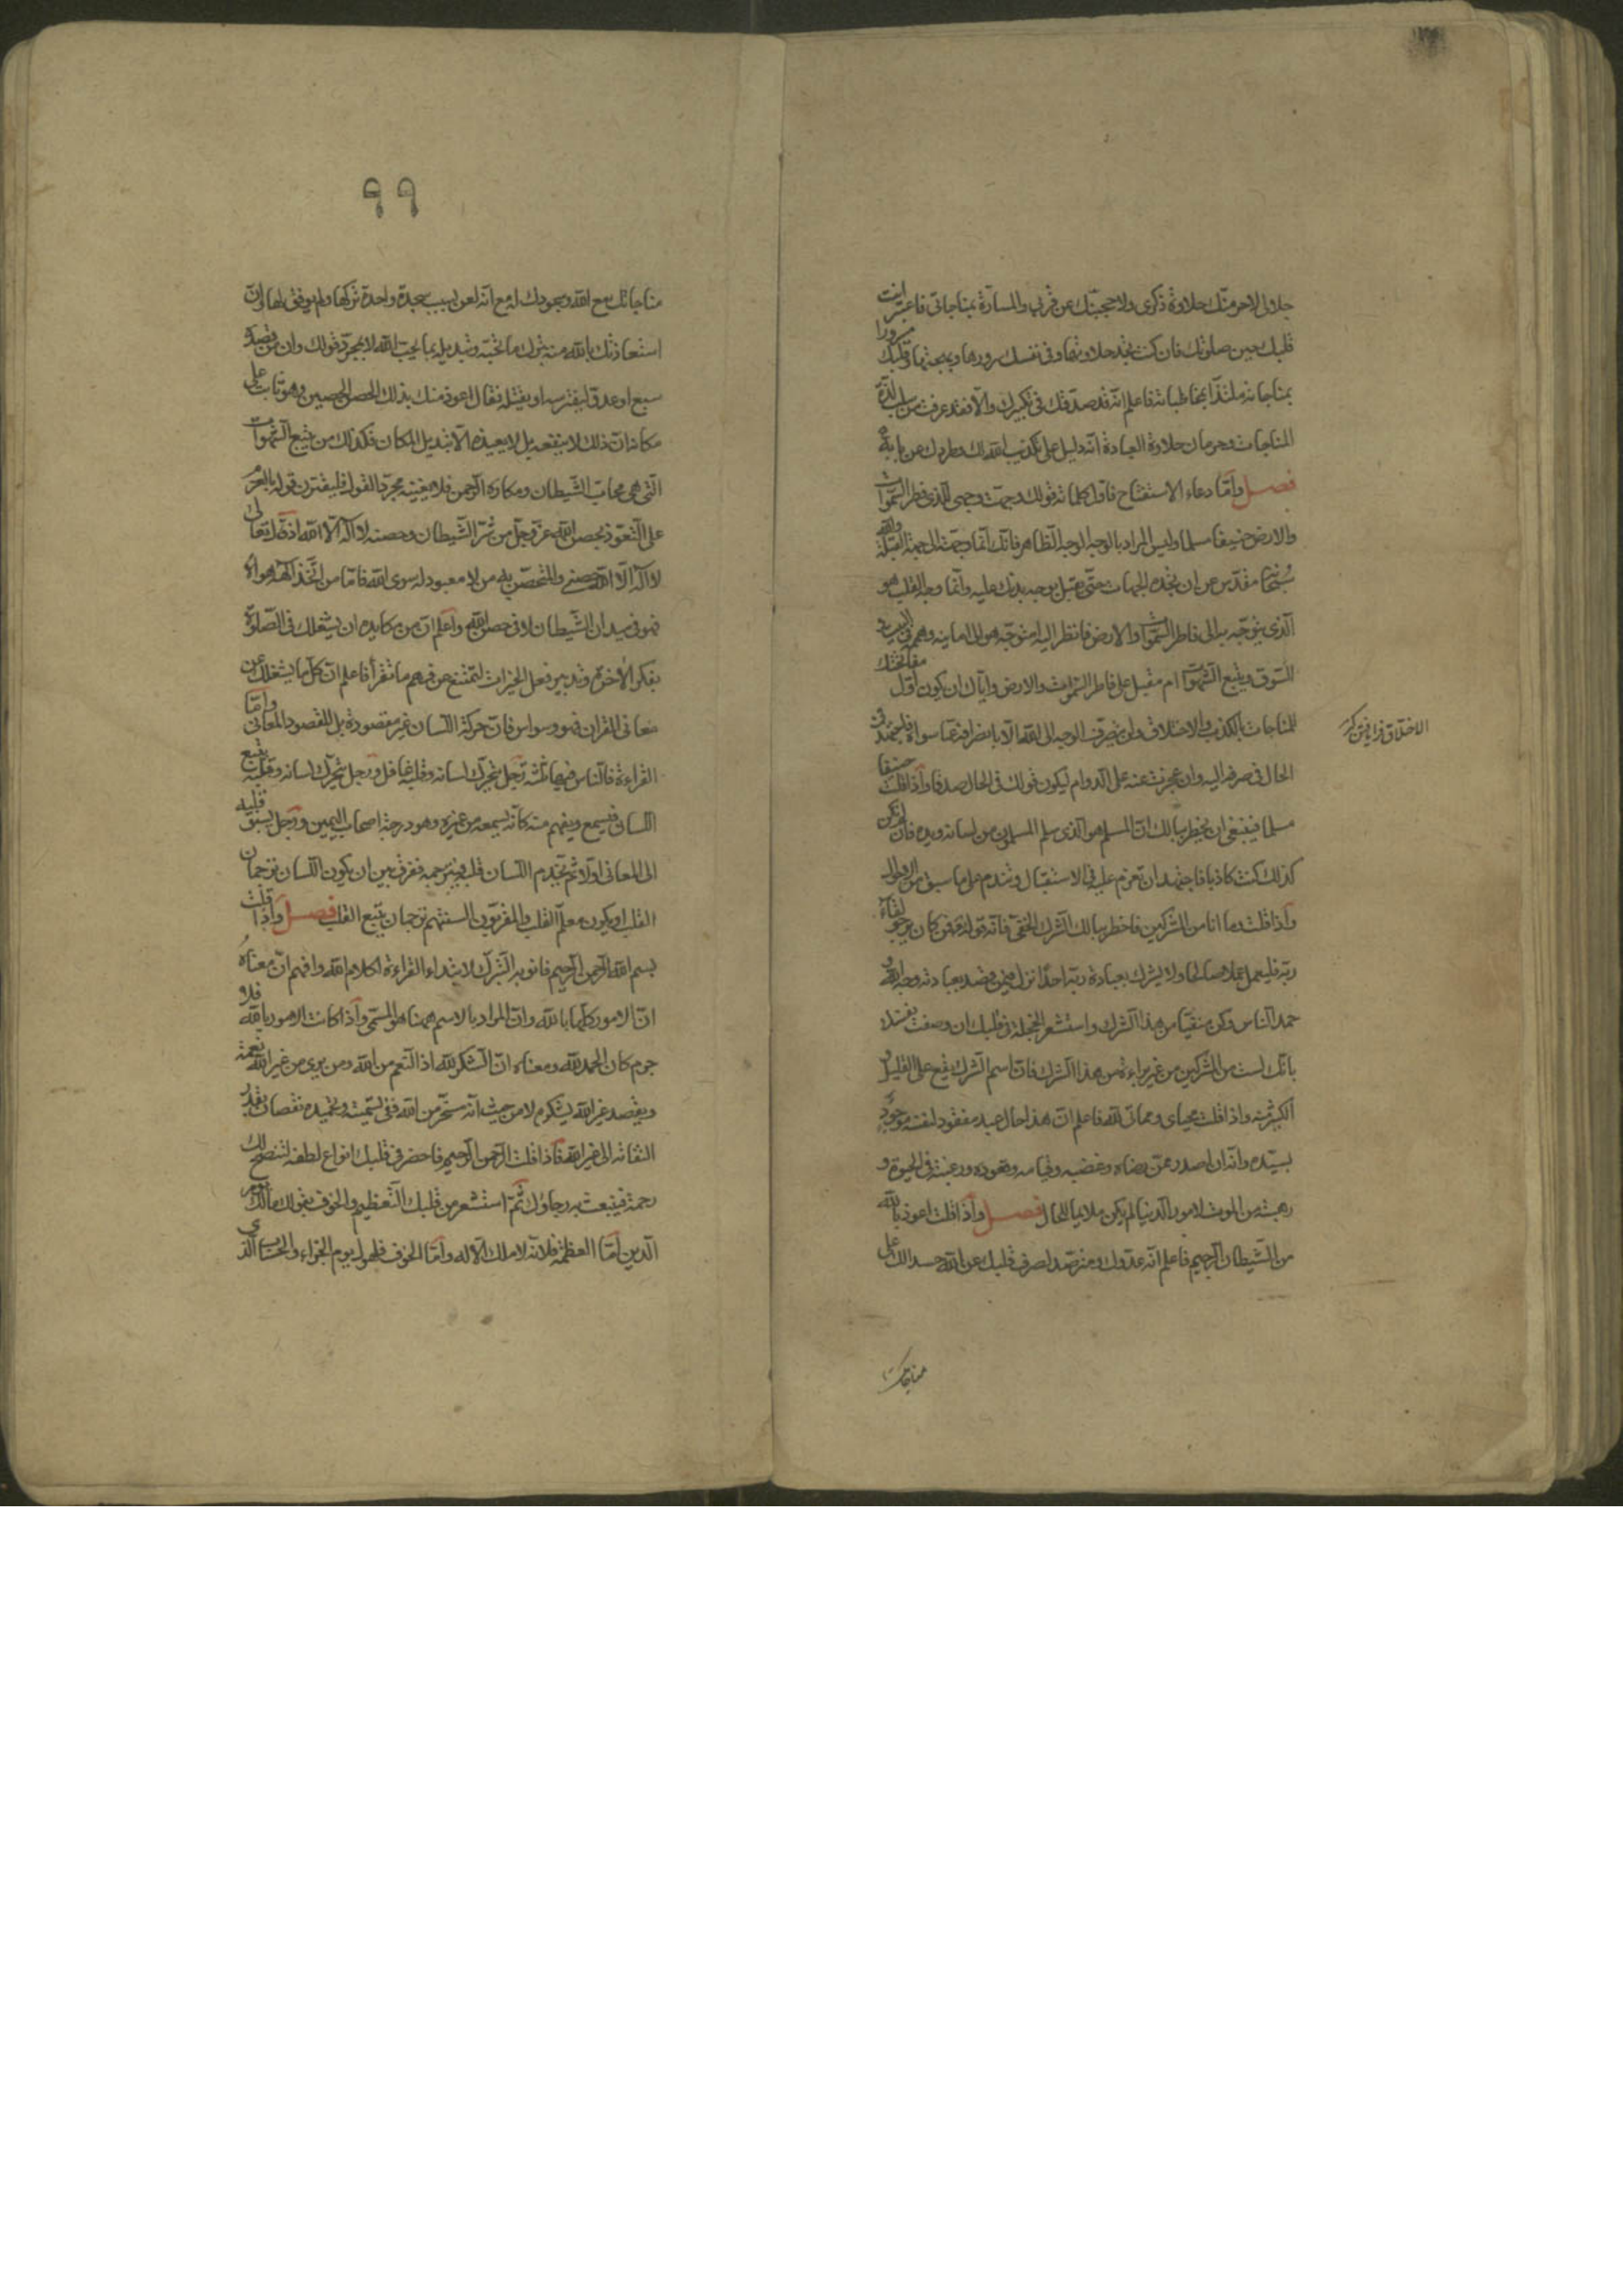 جلالى لاحرمنّك حلاوة ذكرى ولاحجبنّك عن قربى والمسارّة بمناجاتى فاعتبر انت
قلبك حين صلوتك فان كنت تجد حلاوتها وفى نفسك سرورها وبهجتها وقلبك مسرورا
بمناجاته ملتذّا بمخاطباته فاعلم انّه قد صدّقك فى تكبيرك والّا فقد عرفت من سلب لذّة
المناجات وحرمان حلاوة العبادة انّه دليل على تكذيب الله لك وطردك عن بابه
فصل وامّا دعاء الاستفتاح فاوّل كلماته قولك وجّهت وجهى للّذى فطر السّموات
والارض حنيفا مسلما وليس المراد بالوجه الوجه الظّاهر فانّك انّما وجّهته الى جهة القبلة والله
سبحانه مقدّس عن ان تحدّه الجهات حتّى تقبل بوجه بدنك عليه وانّما وجه القلب هو
الّذى يتوجّه به الى فاطر السّموات والارض فانظر اليه امتوجّه هو الى امانيه وهمّه فى البيت و
السّوق ويتّبع الشّهوات ام مقبل على فاطر السّموات والارض وايّاك ان يكون اوّل مفاتحتك
للمناجات بالكذب والاختلاق ولن ينصرف الوجه الى الله الّا بانصرافه عمّا سواه فاجتهد فى
الحال فى صرفه اليه وان عجزت عنه على الدّوام ليكون قولك فى الحال صدقا واذا قلت حنيفا
مسلما فينبغى ان يخطر ببالك انّ المسلم هو الّذى سلم المسلمون من لسانه ويده فان لم تكن
كذلك كنت كاذبا فاجتهد ان تعزم عليه فى الاستقبال وتندم على ما سبق من الاحوال
واذا قلت وما انا من المشركين فاخطر ببالك الشّرك الخفىّ فانّ قوله فمن كان يرجو لقاء
ربّه فليعمل عملا صالحا ولا يشرك بعبادة ربّه احدا نزل فيمن قصد بعبادته وجه الله و
حمد النّاس وكن منفيّا من هذا الشّرك واستشعر الخجلة فى قلبك ان وصفت نفسك
بانّك لست من المشركين من غير براءة من هذا الشّرك فانّ اسم الشّرك يقع على القليل و
الكثير منه واذا قلت محياى ومماتى لله فاعلم انّ هذا حال عبد مفقود لنفسه موجود
بسيّده وانّه ان صدر عمّن رضاه وغضبه وقيامه وقعوده ورغبته فى الحيوة و
رهبته من الموت لامور الدّنيا لم يكن ملايما للحال فصل واذا قلت اعوذ بالله
من الشّيطان الرّجيم فاعلم انّه عدوّك ومترصّد لصرف قلبك عن الله حسدا لك على
مناجاتك
٩٩
مناجاتك مع الله وسجودك له مع انّه لعن بسبب سجدة واحدة تركها ولم يوفّق لها وانّ
استعاذتك بالله منه بترك ما تحبّه وتبديله بما يحبّ الله لا بمجرّد قولك وانّ من قصده
سبع او عدوّ ليفترسه او يقتله فقال اعوذ منك بذلك الحصن الحصين وهو ثابت على
مكانه انّ ذلك لا ينفعه بل لا يعيذه الّا تبديل المكان فكذلك من يتّبع الشّهوات
الّتى هى محابّ الشّيطان ومكاره الرّحمن فلا يغنيه مجرّد القول فليقترن قوله بالعزم
على التّعوّذ بحصن الله عزّ وجلّ من شرّ الشّيطان وحصنه لا اله الّا الله اذ قال تعالى
لا اله الّا الله حصنى والمتحصّن به من لا معبود له سوى الله فامّا من اتّخذ الهه هواه
فهو فى ميدان الشّيطان لا فى حصن الله واعلم انّ من مكايده ان يشغلك فى الصّلوة
بفكر الآخرة وتدبير فعل الخيرات لتمتنع عن فهم ما تقرأ فاعلم انّ كلّ ما يشغلك عن
معانى القرآن فهو وسواس فانّ حركة اللّسان غير مقصودة بل المقصود المعانى وامّا
القراءة فالنّاس فيها ثلثة رجل يتحرّك لسانه وقلبه غافل ورجل يتحرّك لسانه وقلبه يتبع
اللّسان فيسمع ويفهم منه كانّه يسمعه من غيره وهو درجة اصحاب اليمين ورجل يسبق قلبه
الى المعانى اوّلا ثمّ يخدم اللّسان قلبه فيترجمه ففرق بين ان يكون اللّسان ترجمان
القلب او يكون معلّم القلب والمقرّبون السنتهم ترجمان يتبع القلب فصل واذا قلت
بسم الله الرّحمن الرّحيم فانو به التّبرّك لابتداء القراءة لكلام الله وافهم انّ معناه
انّ الامور كلّها بالله وانّ المراد بالاسم ههنا هو المسمّى واذا كانت الامور بالله فلا
جرم كان الحمد لله ومعناه انّ الشّكر لله اذ النّعم من الله ومن يرى من غير الله نعمة
ويقصد غير الله بشكره لا من حيث انّه مسخّر من الله ففى تسميته وتحميده نقصان بقدر
التفاته الى غير الله فاذا قلت الرّحمن الرّحيم فاحضر فى قلبك انواع لطفه لتتّضح لك
رحمته فينبعث به رجاؤك ثمّ استشعر من قلبك التّعظيم والخوف بقولك مالك يوم
الدّين امّا العظمة فلانّه لا ملك الّا له وامّا الخوف فلهول يوم الجزاء والحساب الّذى